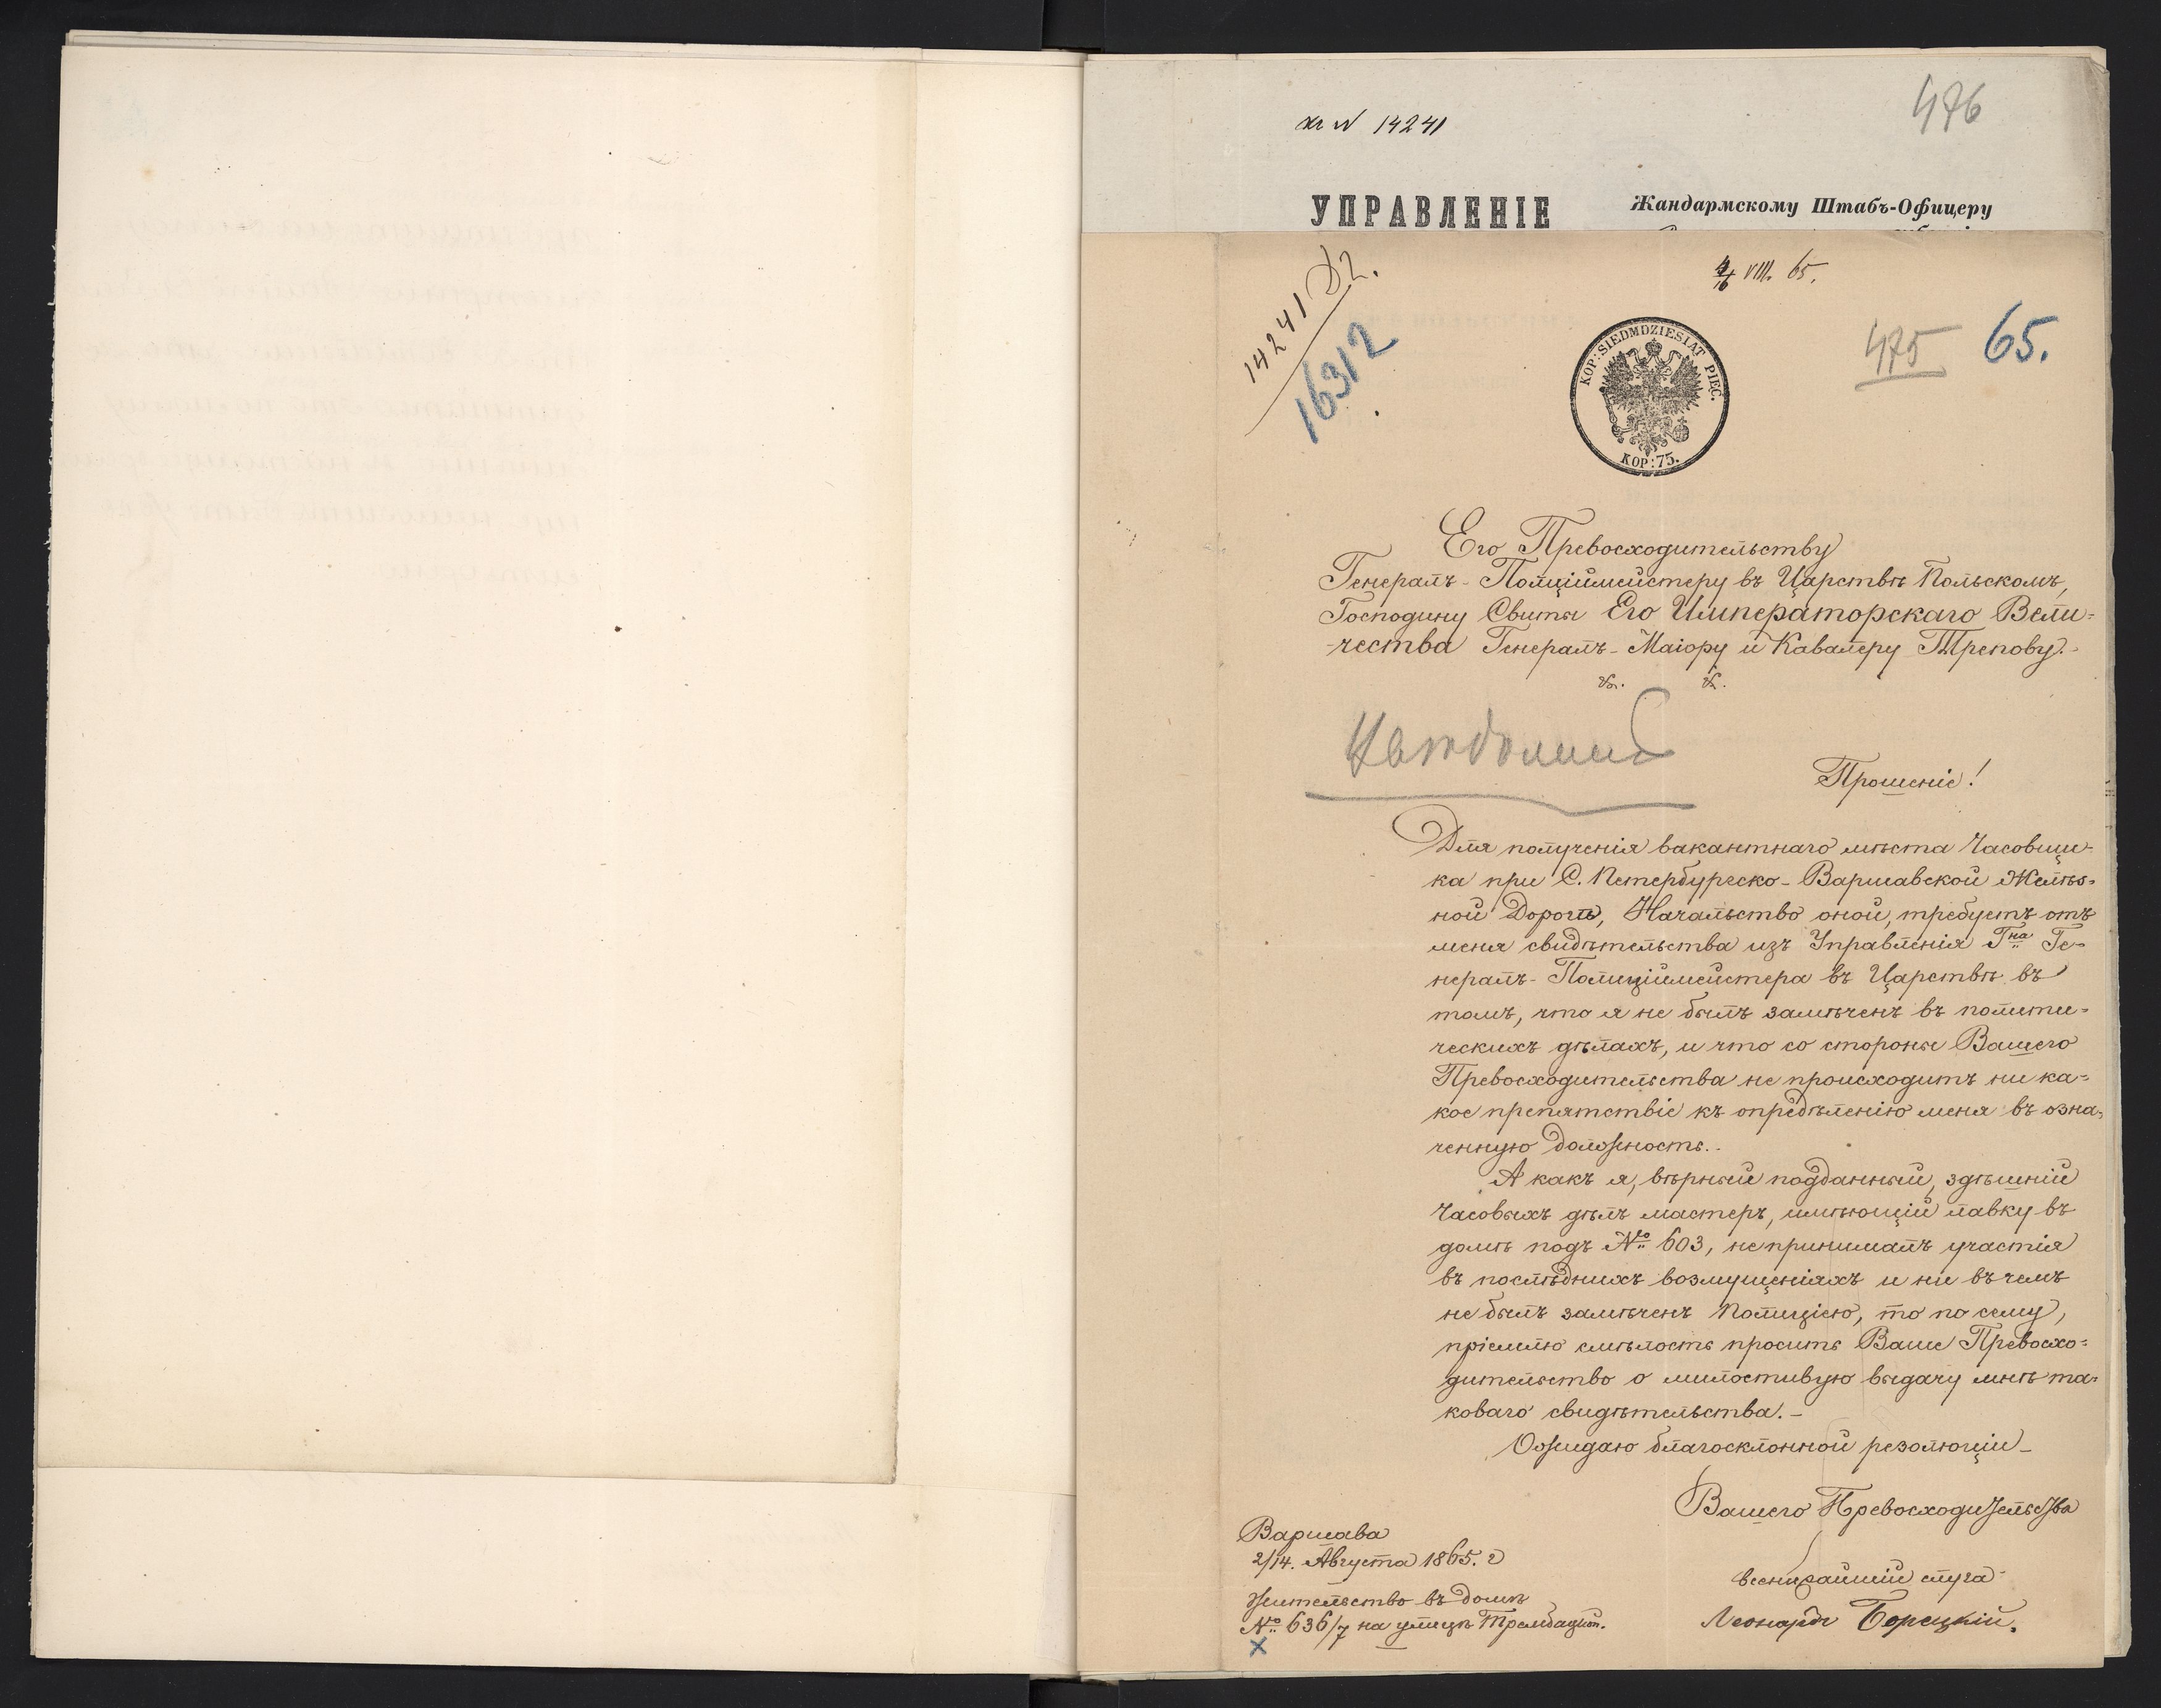 № 14241
476
УПРАВЛЕНІЕ
Жандармскому Штабъ-Офицеру
4/16 VIII. 65.
14241 Д2.
16312
475
65.
KOP: SIEDMDZIESIAT PIĘC.
KOP: 75.
Его Превосходительству
Генералъ-Полиціймейстеру въ Царствѣ Польскомъ,
Господину Свиты Его Императорскаго Вели=
чества Генералъ-Маіору и Кавалеру Трепову.
Прошеніе!
Для полученія вакантнаго мѣста Часовщи-
ка при С. Петербургско-Варшавской Желѣз-
ной Дорогѣ, Начальство оной, требуетъ отъ
меня свидѣтельства изъ Управленія Гна Ге-
нералъ-Полиціймейстера въ Царствѣ въ
томъ, что я не былъ замѣченъ въ полити=
ческихъ дѣлахъ, и что со стороны Вашего
Превосходительства не происходитъ ни ка=
кое препятствіе къ опредѣленію меня въ озна=
ченную должность..
А какъ я, вѣрный подданный, здѣшній
Часовыхъ дѣлъ мастеръ, имѣющій лавку въ
домѣ подъ № 603, не принималъ участія
въ послѣднихъ возмущеніяхъ и ни въ чемъ
не былъ замѣченъ Полиціею, то по сему,
пріемлю смѣлость просить Ваше Превосхо=
дительство о милостивую выдачу мнѣ та=
коваго свидѣтельства.-
Ожидаю благосклонной резолюціи-
Вашего Превосходительства
Варшава
2/14. Августа 1865. г
всенижайшій слуга
Жительство въ домѣ
№ 636/7 на улицѣ Трембацкой.
Леонардъ Борецкій.